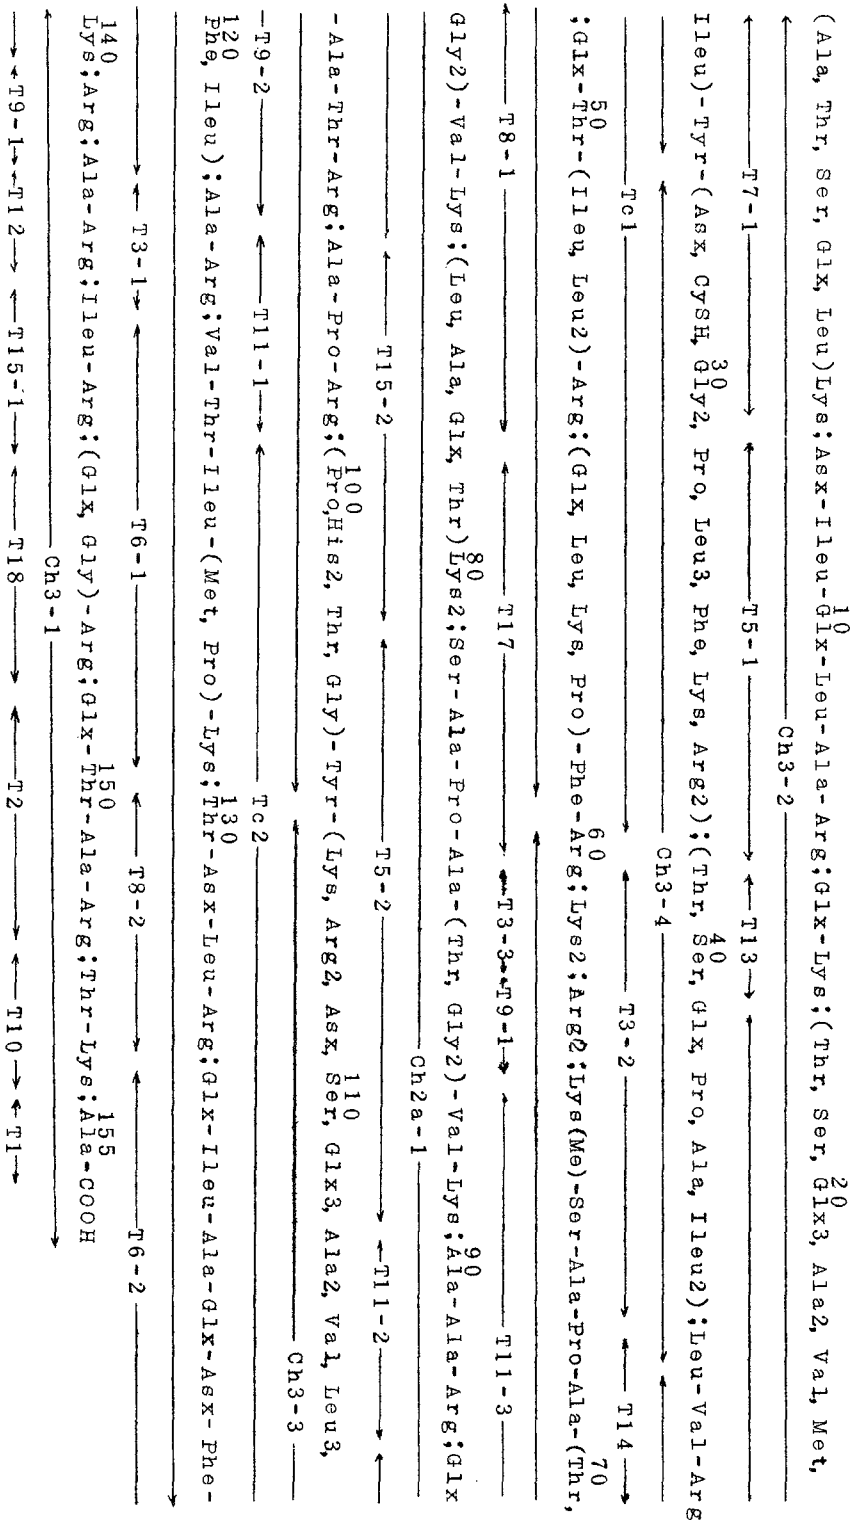 10 20
(Ala, Thr, Ser, Glx, Leu)Lys;Asx-Ileu-Glx-Leu-Ala-Arg;Glx-Lys;(Thr, Ser, Glx3, Ala2, Val, Met,
Ch3-2
T7-1 T5-1 T13
30 40
Ileu)-Tyr-(Asx, CySH, Gly2, Pro, Leu3, Phe, Lys, Arg2);(Thr, Ser, Glx, Pro, Ala, Ileu2);Leu-Val-Arg
Ch3-4
Tc1 T3-2 T14
50 60 70
;Glx-Thr-(Ileu, Leu2)-Arg;(Glx, Leu, Lys, Pro)-Phe-Arg;Lys2;Arg2;Lys(Me)-Ser-Ala-Pro-Ala-(Thr,
T8-1 T17 T3-3 T9-1 T11-3
80 90
Gly2)-Val-Lys;(Leu, Ala, Glx, Thr)Lys2;Ser-Ala-Pro-Ala-(Thr, Gly2)-Val-Lys;Ala-Ala-Arg;Glx
Ch2a-1
T15-2 T5-2 T11-2
100 110
-Ala-Thr-Arg;Ala-Pro-Arg;(Pro,His2, Thr, Gly)-Tyr-(Lys, Arg2, Asx, Ser, Glx3, Ala2, Val, Leu3,
Ch3-3
T9-2 T11-1 Tc2
120 130
Phe, Ileu);Ala-Arg;Val-Thr-Ileu-(Met, Pro)-Lys;Thr-Asx-Leu-Arg;Glx-Ileu-Ala-Glx-Asx-Phe-
T3-1 T6-1 T8-2 T6-2
140 150 155
Lys;Arg;Ala-Arg;Ileu-Arg;(Glx, Gly)-Arg;Glx-Thr-Ala-Arg;Thr-Lys;Ala-COOH
Ch3-1
T9-1 T12 T15-1 T18 T2 T10 T1